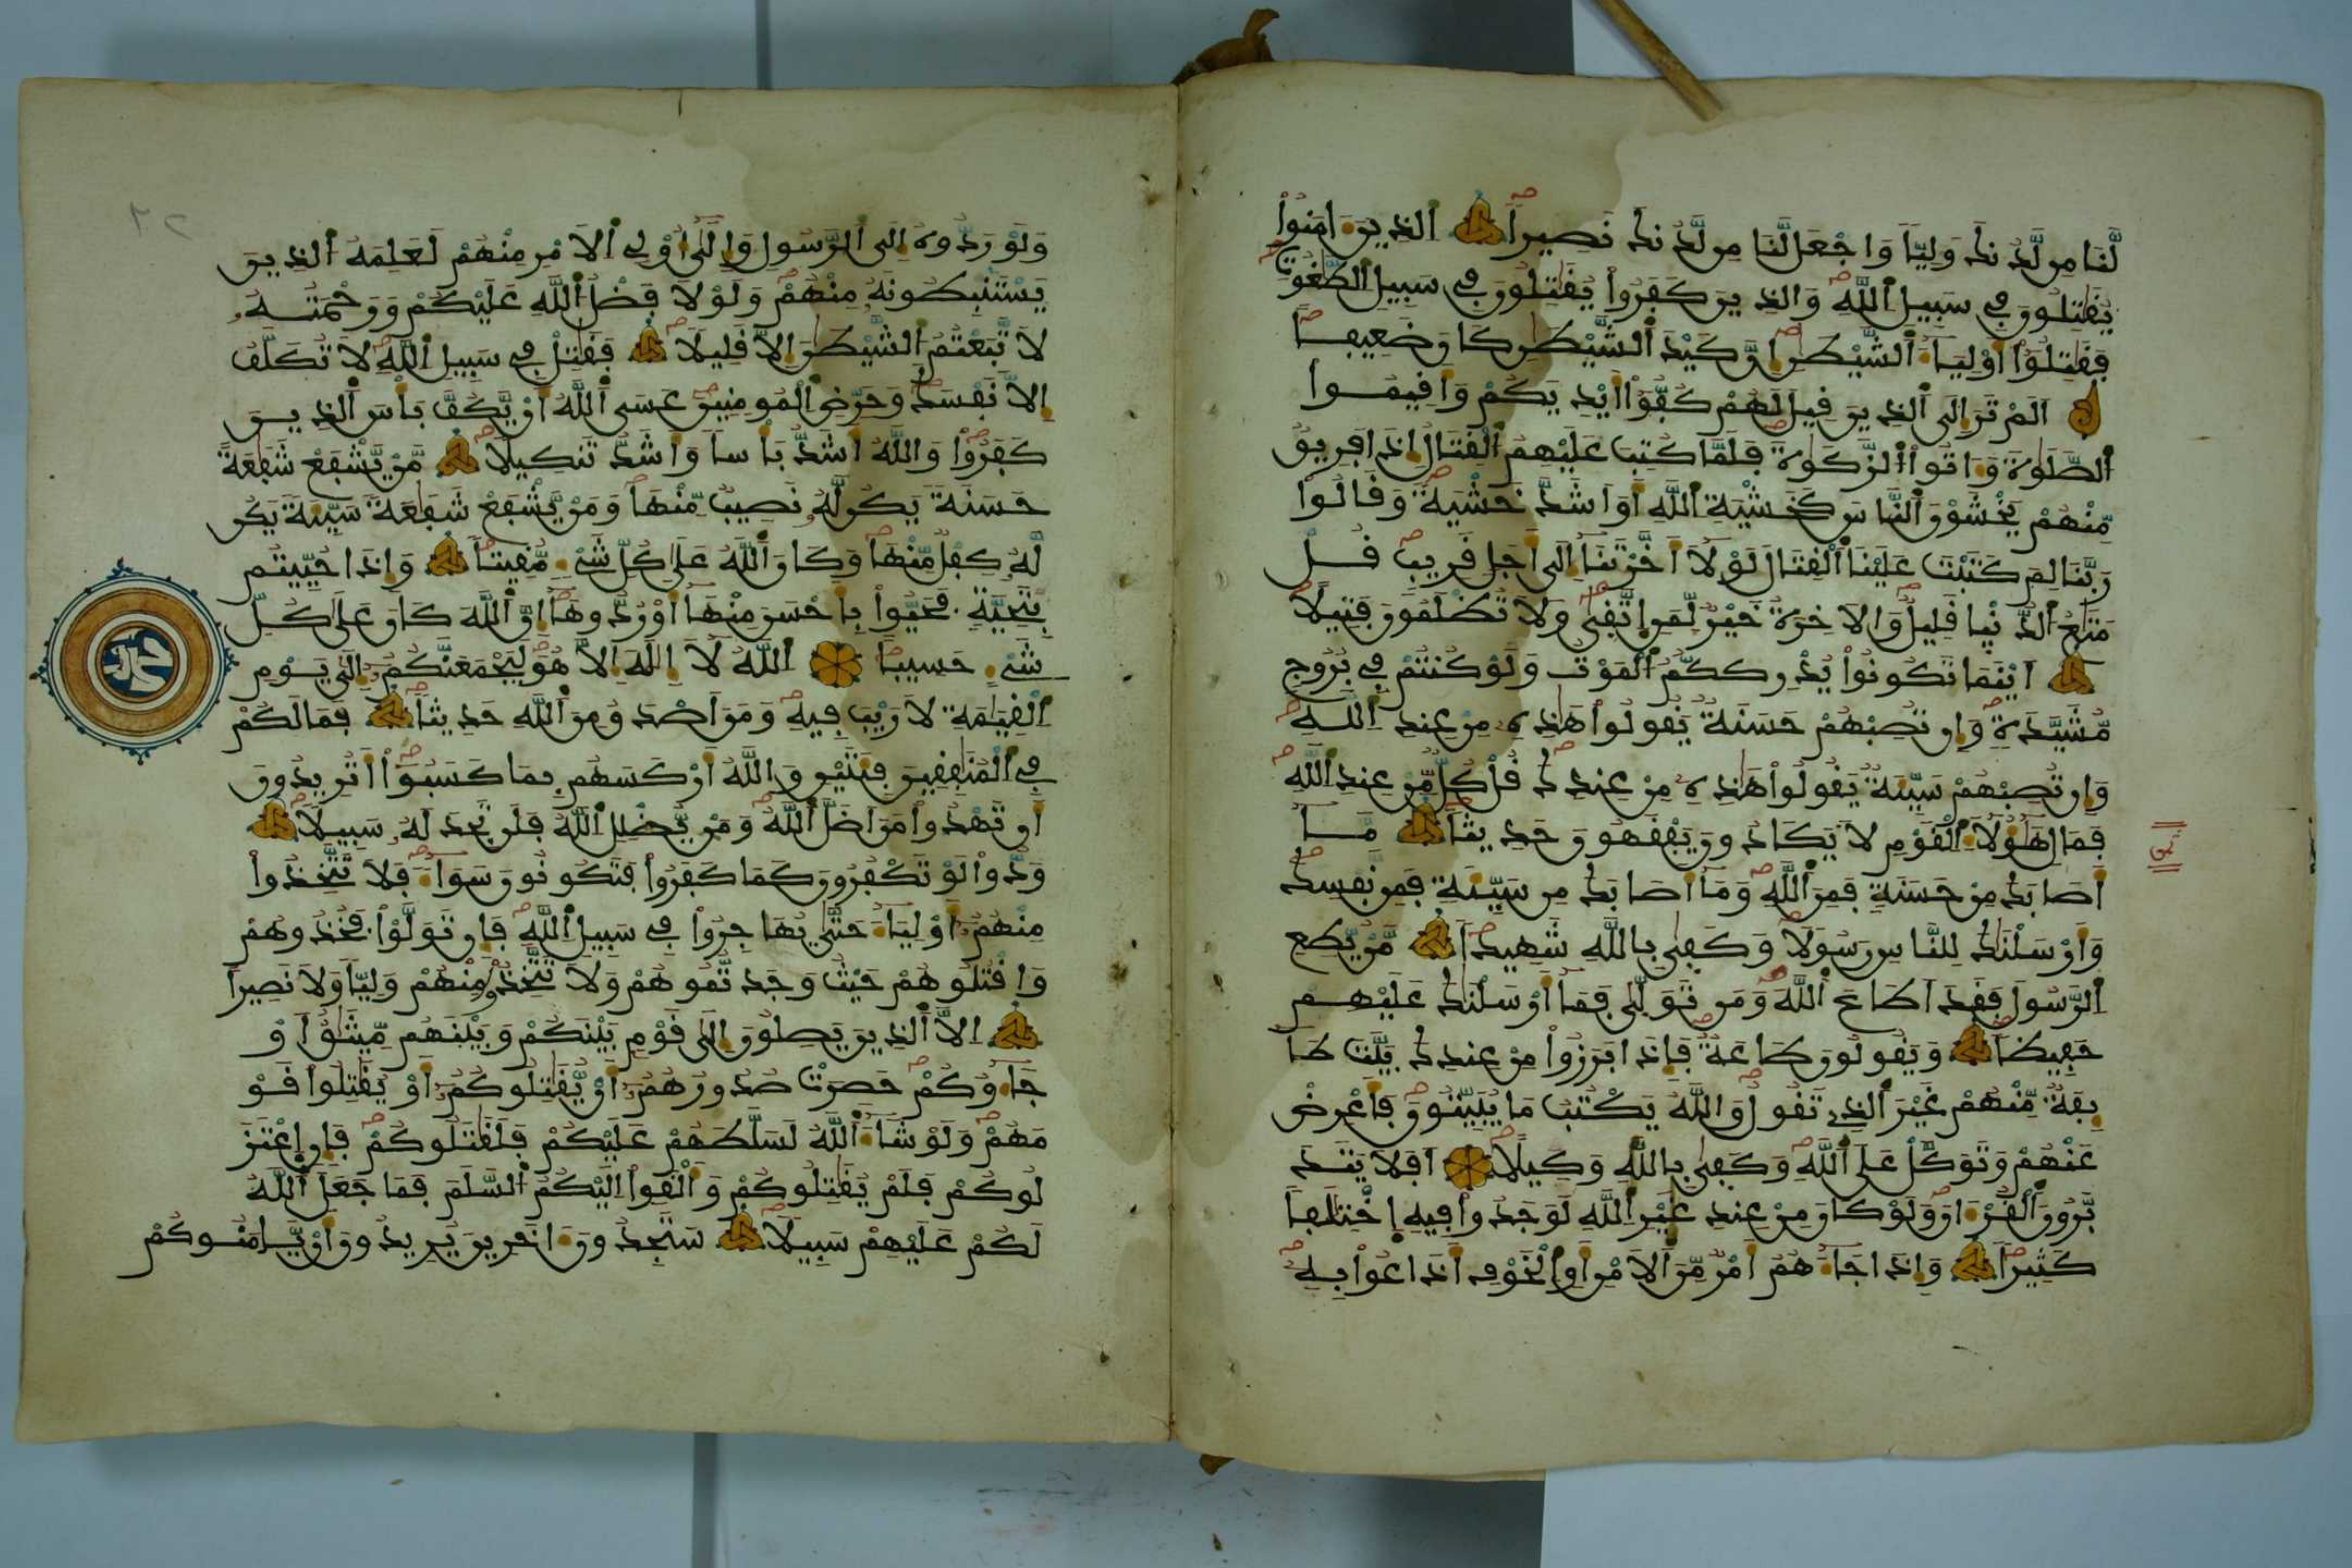 لَّنَا مِن لَّدُنكَ وَلِيّاً وَاجْعَل لَّنَا مِن لَّدُنكَ نَصِيراً الذِينَ ءَامَنُواْ
يُقَٰتِلُونَ فِے سَبِيلِ اِ۬للَّهِ وَالذِينَ كَفَرُواْ يُقَٰتِلُونَ فِے سَبِيلِ اِ۬لطَّٰغُوتِ
فَقَٰتِلُوٓاْ أَوْلِيَآءَ اَ۬لشَّيْطَٰنِ إِنَّ كَيْدَ اَ۬لشَّيْطَٰنِ كَانَ ضَعِيفاً
اَلَمْ تَرَ إِلَى اَ۬لذِينَ قِيلَ لَهُمْ كُفُّوٓاْ أَيْدِيَكُمْ وَأَقِيمُواْ
اُ۬لصَّلَوٰةَ وَءَاتُواْ اُ۬لزَّكَوٰةَ فَلَمَّا كُتِبَ عَلَيْهِمُ اُ۬لْقِتَالُ إِذَا فَرِيقٌ
مِّنْهُمْ يَخْشَوْنَ اَ۬لنَّاسَ كَخَشْيَةِ اِ۬للَّهِ أَوَ اَشَدَّ خَشْيَةً وَقَالُواْ
رَبَّنَا لِمَ كَتَبْتَ عَلَيْنَا اَ۬لْقِتَالَ لَوْلَآ أَخَّرْتَنَآ إِلَىٰٓ أَجَلٍ قَرِيبٍ قُلْ
مَتَٰعُ اُ۬لدُّنْيا قَلِيلٌ وَالَاخِرَةُ خَيْرٌ لِّمَنِ اِ۪تَّقِىٰ وَلَا تُظْلَمُونَ فَتِيلاً
اَيْنَمَا تَكُونُواْ يُدْرِككُّمُ اُ۬لْمَوْتُ وَلَوْ كُنتُمْ فِے بُرُوجٍ
مُّشَيَّدَةٍ وَإِن تُصِبْهُمْ حَسَنَةٌ يَقُولُواْ هَٰذِهِۦ مِنْ عِندِ اِ۬للَّهِ
وَإِن تُصِبْهُمْ سَيِّئَةٌ يَقُولُواْ هَٰذِهِۦ مِنْ عِندِكَ قُلْ كُلٌّ مِّنْ عِندِ اِ۬للَّهِ
فَمَالِ هَٰٓؤُلَآءِ اِ۬لْقَوْمِ لَا يَكَادُونَ يَفْقَهُونَ حَدِيثاً مَّآ
أَصَابَكَ مِنْ حَسَنَةٍ فَمِنَ اَ۬للَّهِ وَمَآ أَصَابَكَ مِن سَيِّئَةٍ فَمِن نَّفْسِكَ
وَأَرْسَلْنَٰكَ لِلنَّاسِ رَسُولاً وَكَفِىٰ بِاللَّهِ شَهِيداً مَّنْ يُّطِعِ
اِ۬لرَّسُولَ فَقَدَ اَطَاعَ اَ۬للَّهَ وَمَن تَوَلّىٰ فَمَآ أَرْسَلْنَٰكَ عَلَيْهِمْ
حَفِيظاً وَيَقُولُونَ طَاعَةٌ فَإِذَا بَرَزُواْ مِنْ عِندِكَ بَيَّتَ طَآ
ئِفَةٌ مِّنْهُمْ غَيْرَ اَ۬لذِے تَقُولُ وَاللَّهُ يَكْتُبُ مَا يُبَيِّتُونَ فَأَعْرِضْ
عَنْهُمْ وَتَوَكَّلْ عَلَى اَ۬للَّهِ وَكَفِىٰ بِاللَّهِ وَكِيلاً اَفَلَا يَتَدَ
بَّرُونَ اَ۬لْقُرْءَانَ وَلَوْ كَانَ مِنْ عِندِ غَيْرِ اِ۬للَّهِ لَوَجَدُواْ فِيهِ اِ۪خْتِلَٰفاً
كَثِيراً وَإِذَا جَآءَهُمُ أَمْرٌ مِّنَ اَ۬لَامْنِ أَوِ اِ۬لْخَوْفِ أَذَاعُواْ بِهِ
ثمن
وَلَوْ رَدُّوهُ إِلَى اَ۬لرَّسُولِ وَإِلَىٰٓ أُوْلِے اِ۬لَامْرِ مِنْهُمْ لَعَلِمَهُ اُ۬لذِينَ
يَسْتَنۢبِطُونَهُۥ مِنْهُمْ وَلَوْلَا فَضْلُ اُ۬للَّهِ عَلَيْكُمْ وَرَحْمَتُهُۥ
لَاتَّبَعْتُمُ اُ۬لشَّيْطَٰنَ إِلَّا قَلِيلاً فَقَٰتِلْ فِے سَبِيلِ اِ۬للَّهِ لَا تُكَلَّفُ
إِلَّا نَفْسَكَ وَحَرِّضِ اِ۬لْمُومِنِينَ عَسَى اَ۬للَّهُ أَنْ يَّكُفَّ بَأْسَ اَ۬لذِينَ
كَفَرُواْ وَاللَّهُ أَشَدُّ بَأْساً وَأَشَدُّ تَنكِيلاً مَّنْ يَّشْفَعْ شَفَٰعَةً
حَسَنَةً يَكُن لَّهُۥ نَصِيبٌ مِّنْهَا وَمَنْ يَّشْفَعْ شَفَٰعَةً سَيِّئَةً يَكُن
لَّهُۥ كِفْلٌ مِّنْهَا وَكَانَ اَ۬للَّهُ عَلَىٰ كُلِّ شَےْءٍ مُّقِيتاً وَإِذَا حُيِّيتُم
بِتَحِيَّةٍ فَحَيُّواْ بِأَحْسَنَ مِنْهَآ أَوْ رُدُّوهَآ إِنَّ اَ۬للَّهَ كَانَ عَلَىٰ كُلِّ
شَےْءٍ حَسِيباً اَ۬للَّهُ لَآ إِلَٰهَ إِلَّا هُوَ لَيَجْمَعَنَّكُمُۥٓ إِلَىٰ يَوْمِ
اِ۬لْقِيَٰمَةِ لَا رَيْبَ فِيهِ وَمَنَ اَصْدَقُ مِنَ اَ۬للَّهِ حَدِيثاً فَمَا لَكُمْ
فِے اِ۬لْمُنَٰفِقِينَ فِئَتَيْنِ وَاللَّهُ أَرْكَسَهُم بِمَا كَسَبُوٓاْ أَتُرِيدُونَ
أَن تَهْدُواْ مَنَ اَضَلَّ اَ۬للَّهُ وَمَنْ يُّضْلِلِ اِ۬للَّهُ فَلَن تَجِدَ لَهُۥ سَبِيلاً
وَدُّواْ لَوْ تَكْفُرُونَ كَمَا كَفَرُواْ فَتَكُونُونَ سَوَآءً فَلَا تَتَّخِذُواْ
مِنْهُمُۥٓ أَوْلِيَآءَ حَتَّىٰ يُهَاجِرُواْ فِے سَبِيلِ اِ۬للَّهِ فَإِن تَوَلَّوْاْ فَخُذُوهُمْ
وَاقْتُلُوهُمْ حَيْثُ وَجَدتُّمُوهُمْ وَلَا تَتَّخِذُواْ مِنْهُمْ وَلِيّاً وَلَا نَصِيراً
اِلَّا اَ۬لذِينَ يَصِلُونَ إِلَىٰ قَوْمِۢ بَيْنَكُمْ وَبَيْنَهُم مِّيثَٰقٌ أَوْ
جَآءُوكُمْ حَصِرَتْ صُدُورُهُمُۥٓ أَنْ يُّقَٰتِلُوكُمُۥٓ أَوْ يُقَٰتِلُواْ قَوْ
مَهُمْ وَلَوْ شَآءَ اَ۬للَّهُ لَسَلَّطَهُمْ عَلَيْكُمْ فَلَقَٰتَلُوكُمْ فَإِنِ اِ۪عْتَزَ
لُوكُمْ فَلَمْ يُقَٰتِلُوكُمْ وَأَلْقَوِاْ اِلَيْكُمُ اُ۬لسَّلَمَ فَمَا جَعَلَ اَ۬للَّهُ
لَكُمْ عَلَيْهِمْ سَبِيلاً سَتَجِدُونَ ءَاخَرِينَ يُرِيدُونَ أَنْ يَّامَنُوكُمْ